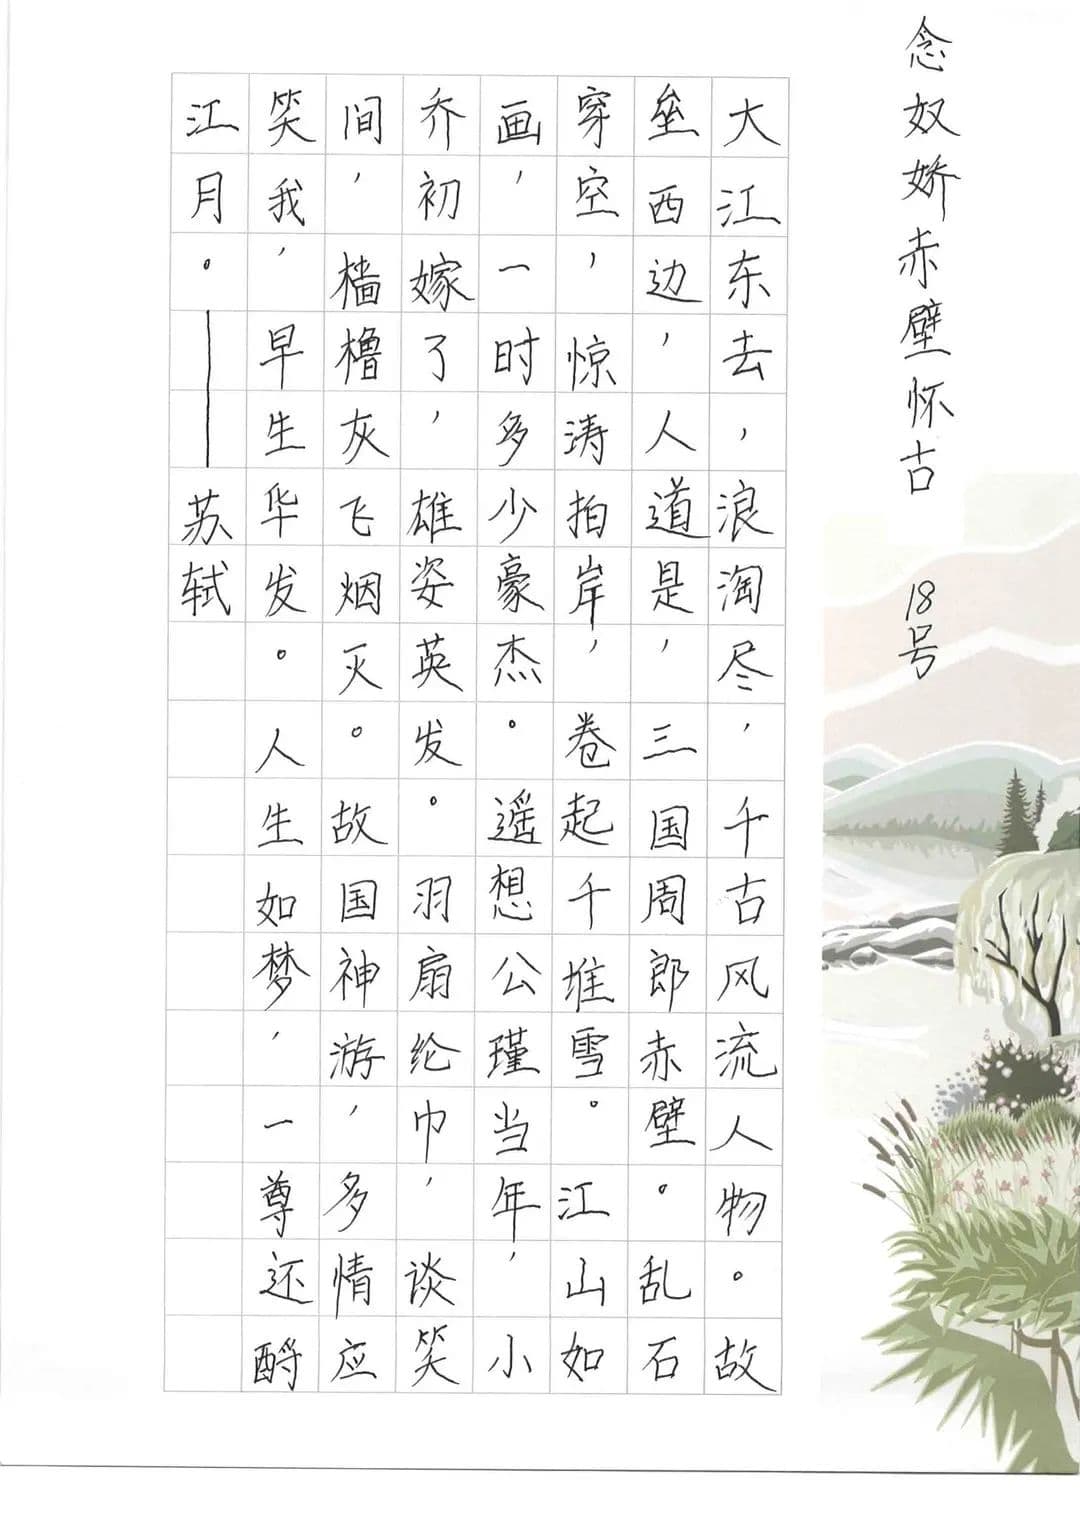 念奴娇赤壁怀古 18号
大江东去，浪淘尽，千古风流人物。故
垒西边，人道是，三国周郎赤壁。乱石
穿空，惊涛拍岸，卷起千堆雪。江山如
画，一时多少豪杰。遥想公瑾当年，小
乔初嫁了，雄姿英发。羽扇纶巾，谈笑
间，樯橹灰飞烟灭。故国神游，多情应
笑我，早生华发。人生如梦，一尊还酹
江月。——苏轼